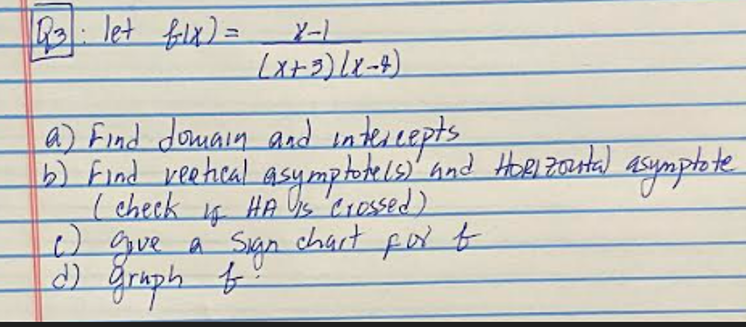 Q3: let f(x) = x-1
(x+3)(x-4)
a) Find domain and intercepts
b) Find vertical asymptote(s) and Horizontal asymptote
(check if HA is crossed)
c) give a sign chart for f
d) graph f.